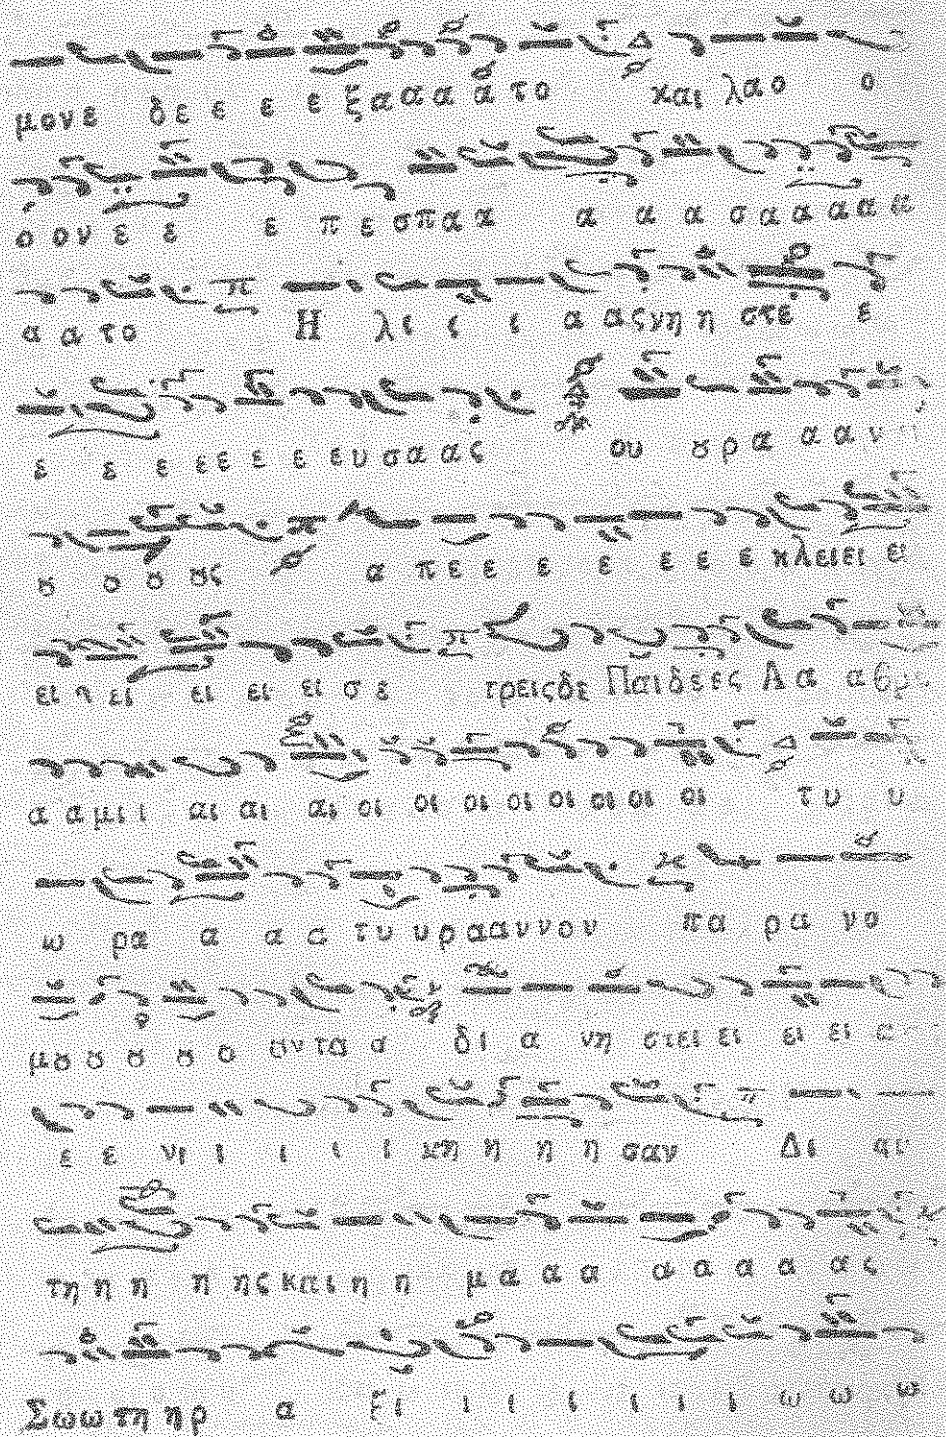 μονε δε ε ε ε ξα α α α α το και λα ο ο
ο ον ε ε ε π ε σπα α α α α σα α α α α
α α το Η λι ι ι α ας νη η στε ε
ε ε ε εε ε ε ευσα ας ου ȣρα α α ν
ȣ ȣ ȣ ȣς α πε ε ε ε ε ε ε κλειει ει
ει ει ει ει ει σε τρεις δε Παιδεες Α α αβρ
α α μι ι αι αι αι οι οι οι οι οι οι οι οι τυ υ
ω ρα α α α τυ υρααννον πα ρα νο
μȣ ȣ ȣ ȣ ȣντα α δι α νη στει ει ει ει ε
ε ε νι ι ι ι ι κη η η η σαν Δι αυ
τη η η η ης και η η μα α α α α α α ας
Σωωτη ηρ α ξι ι ι ι ι ι ι ω ω ω